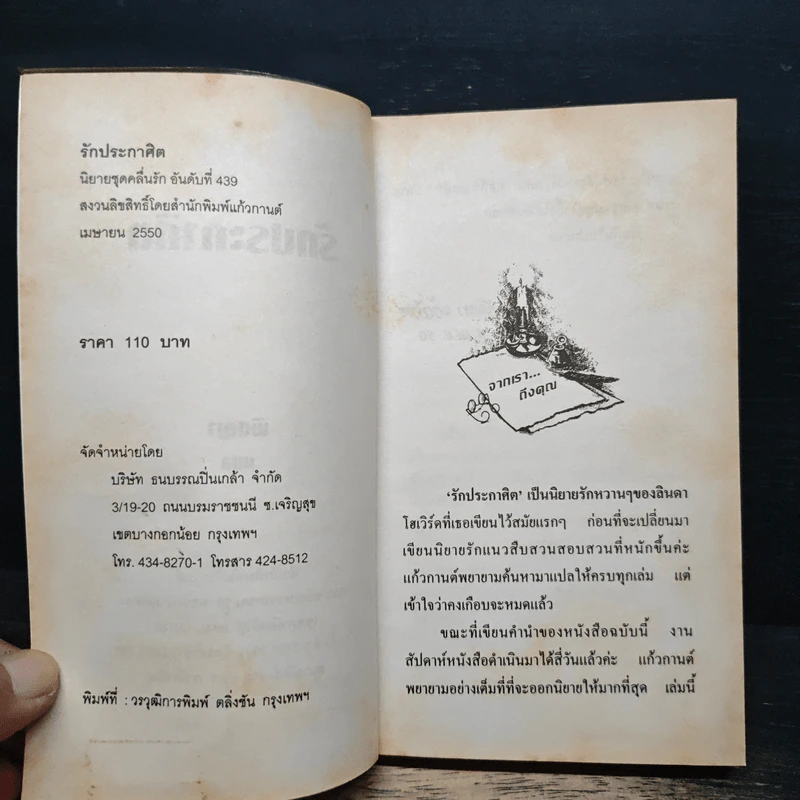 รักประกาศิต
นิยายชุดคลื่นรัก อันดับที่ 439
สงวนลิขสิทธิ์โดยสำนักพิมพ์แก้วกานต์
เมษายน 2550
ราคา 110 บาท
จัดจำหน่ายโดย
บริษัท ธนบรรณปิ่นเกล้า จำกัด
3/19-20 ถนนบรมราชชนนี ซ.เจริญสุข
เขตบางกอกน้อย กรุงเทพฯ
โทร. 434-8270-1 โทรสาร 424-8512
พิมพ์ที่ : วรวุฒิการพิมพ์ ตลิ่งชัน กรุงเทพฯ
จากเรา...
ถึงคุณ
'รักประกาศิต' เป็นนิยายรักหวานๆของลินดา
โฮเวิร์ดที่เธอเขียนไว้สมัยแรกๆ ก่อนที่จะเปลี่ยนมา
เขียนนิยายรักแนวสืบสวนสอบสวนที่หนักขึ้นค่ะ
แก้วกานต์พยายามค้นหามาแปลให้ครบทุกเล่ม แต่
เข้าใจว่าคงเกือบจะหมดแล้ว
ขณะที่เขียนคำนำของหนังสือฉบับนี้ งาน
สัปดาห์หนังสือดำเนินมาได้สี่วันแล้วค่ะ แก้วกานต์
พยายามอย่างเต็มที่ที่จะออกนิยายให้มากที่สุด เล่มนี้